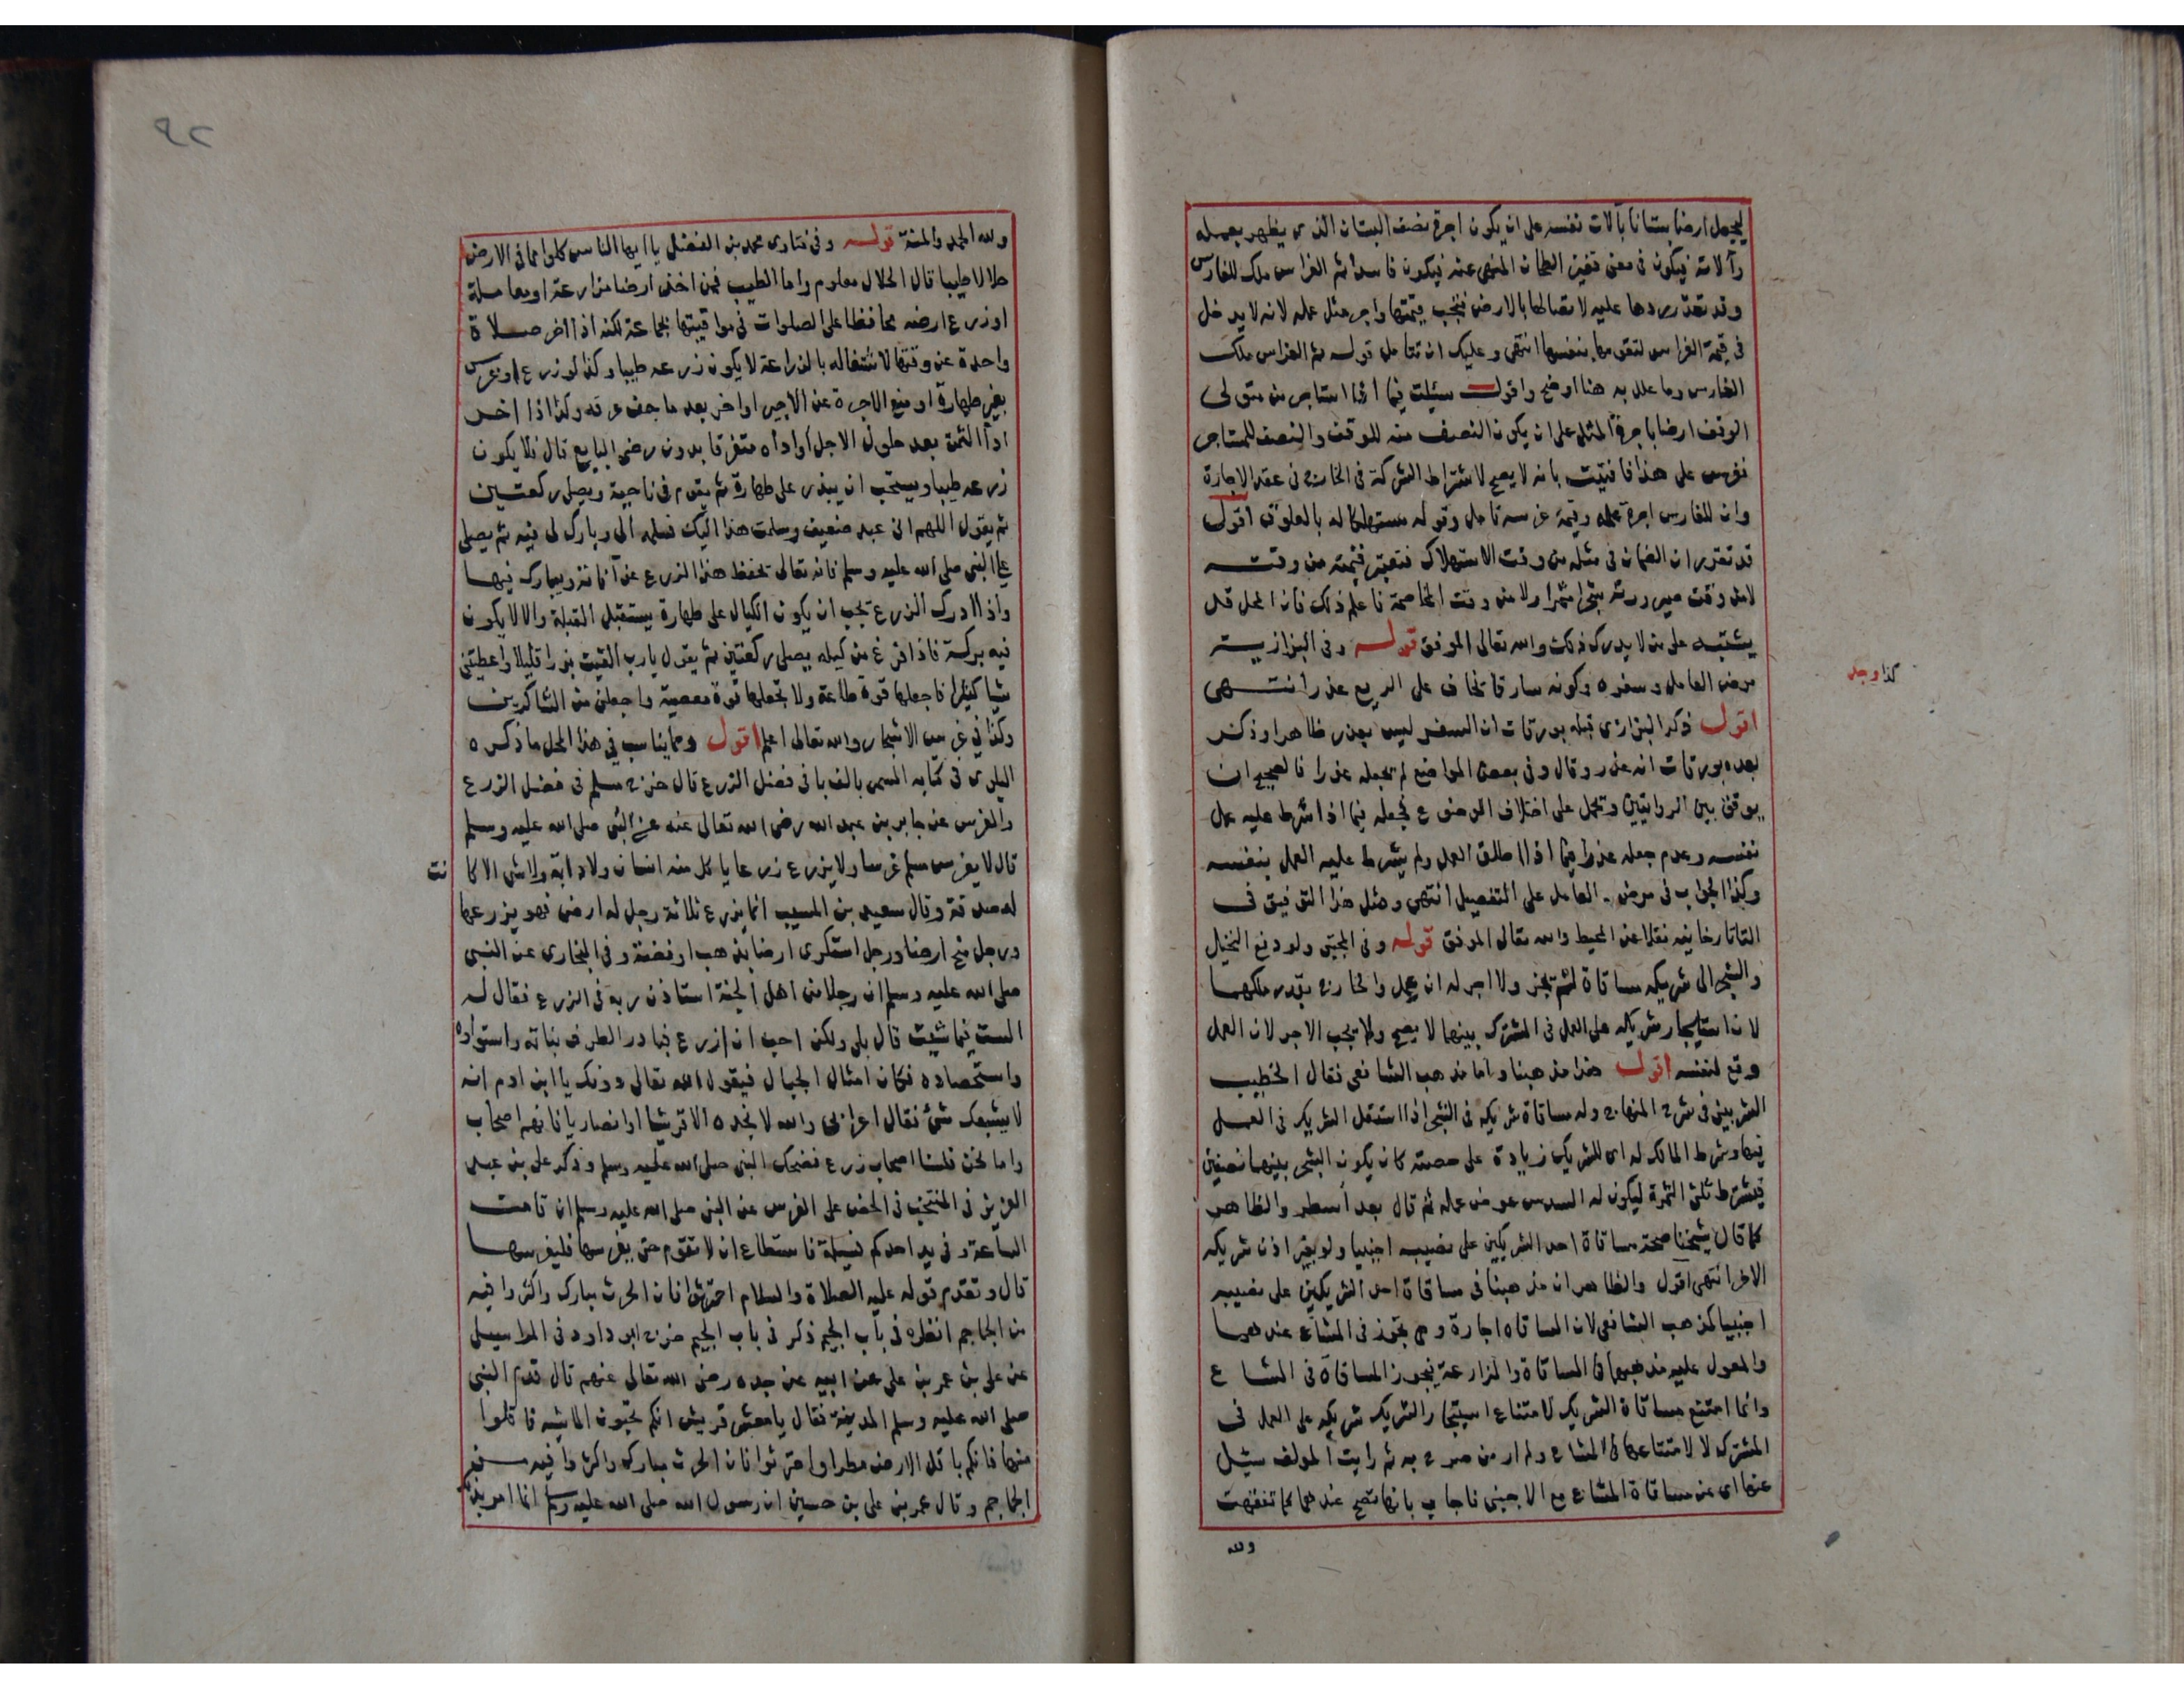 ليجعل ارضا بستانا بآلات نفسه على ان يكون اجرة نصف البستان الذى يظهر بعمله
وآلاته فيكون فى معنى قفيز الطحان المنهى عنه فيكون فاسدا ثم الغراس ملك للغارس
وقد تعذر ردها عليه لاتصالها بالارض فتجب قيمتها واجر مثل عمله لانه لا يدخل
فى قيمة الغراس لتقومها بنفسها انتهى وعليك ان تتامل قوله ثم الغراس ملك
الغارس وما علل به هنا اوضح واقول سئلت فيما اذا استاجر من متولى
الوقف ارضا باجرة المثل على ان يكون النصف منه للوقف والنصف للمستاجر
فغرس على هذا فافتيت بانه لا يصح لاشتراط الشركة فى الخارج فى عقد الاجارة
وان للغارس اجرة عمله وقيمة غرسه تامل وقوله مستهلكا له بالعلوق اقول
قد تقرر ان الضمان فى مثله من وقت الاستهلاك فتعتبر قيمته من وقته
لا من وقت صيرورته شجرا مثمرا ولا من وقت المخاصمة فاعلم ذلك فان المحل قد
يشتبه على من لا يدرك ذلك والله تعالى الموفق قوله وفى البزازية
مرض العامل وسفره وكونه سارقا يخاف على الريع عذر انتهى
كذا وجد
اقول ذكر البزازى قبله بورقات ان السفر ليس بعذر ظاهرا وذكر
بعده بورقات انه عذر وقال وفى بعض المواضع لم يجعله عذرا فالصحيح ان
يوفق بين الروايتين وتحمل على اختلاف الوضع فجعله فيما اذا شرط عليه عمل
نفسه وعدم جعله عذرا فيما اذا اطلق العمل ولم يشرط عليه العمل بنفسه
وكذا الجواب فى مرض العامل على التفصيل انتهى ومثل هذا التوفيق فى
التاتارخانيه نقلا عن المحيط والله تعالى الموفق قوله وفى المجتبى ولو دفع النخيل
والشجر الى شريكه مساقاة لم تجز ولا اجر له ان عمل والخارج بقدر ملكهما
لان استئجار شريكه على العمل فى المشترك بينهما لا يصح ولا يجب الاجر لان العمل
وقع لنفسه اقول هذا مذهبنا واما مذهب الشافعى فقال الخطيب
الشربينى فى شرح المنهاج وله مساقاة شريكه فى الشجر اذا استقل الشريك فى العمل
فيها وشرط المالك له اى للشريك زيادة على حصته كان يكون الشجر بينهما نصفين
فيشترط ثلثى الثمرة ليكون له السدس عوض عمله ثم قال بعد اسطر والظاهر
كما قال شيخنا صحة مساقاة احد الشريكين على نصيبه اجنبيا ولو بغير اذن شريكه
الاخر انتهى اقول والظاهر ان مذهبنا فى مساقاة احد الشريكين على نصيبه
اجنبيا كمذهب الشافعى لان المساقاه اجارة وهى تجوز فى المشاع عندهما
والمعول عليه مذهبهما فى المساقاة والمزارعة فيجوز المساقاة فى المشاع
وانما امتنع مساقاة الشريك لامتناع استيجار الشريك شريكه على العمل فى
المشترك لا لامتناعها فى المشاع ولم ار من صرح به ثم رايت المولف سئل
عنها اى عن مساقاة المشاع مع الاجنبى فاجاب بانها تصح عندهما كما تفقهت
ولله
٩٢
ولله الحمد والمنة قوله وفى فتاوى محمد بن الفضل يا ايها الناس كلوا مما فى الارض
حلالا طيبا قال الحلال معلوم واما الطيب فمن اخذ ارضا مزارعة او معاملة
او زرع ارضه محافظا على الصلوات فى مواقيتها بجماعة لكنه اذا اخر صلاة
واحدة عن وقتها لاشتغاله بالزراعة لا يكون زرعه طيبا وكذا لو زرع او غرس
بغير طهارة او منع الاجرة عن الاجير او اخر بعد ما جف عرقه وكذا اذا اخر
اداء الثمن بعد حلول الاجل او اداه متفرقا بدون رضى البايع قال لا يكون
زرعه طيبا ويستحب ان يبذر على طهارة ثم يقوم فى ناحية ويصلى ركعتين
ثم يقول اللهم انى عبد ضعيف وسلمت هذا اليك فسلمه الى وبارك لى فيه ثم يصلى
على النبى صلى الله عليه وسلم فانه تعالى يحفظ هذا الزرع عن آفاته ويبارك فيها
واذا ادرك الزرع يجب ان يكون الكيال على طهارة يستقبل القبلة والا لا يكون
فيه بركة فاذا فرغ من كيله يصلى ركعتين ثم يقول يا رب القيت بذرا قليلا واعطيتنى
شيا كثيرا فاجعلها قوة طاعة ولا تجعلها قوة معصية واجعلنى من الشاكرين
وكذا فى غرس الاشجار والله تعالى اعلم اقول ومما يناسب فى هذا المحل ما ذكره
البلوى فى كتابه المسمى بالف با فى فضل الزرع قال خرج مسلم فى فضل الزرع
والغرس عن جابر بن عبد الله رضى الله تعالى عنه عن النبى صلى الله عليه وسلم
قال لا يغرس مسلم غرسا ولا يزرع زرعا ياكل منه انسان ولا دابة ولا شى الا كا نت
له صدقة وقال سعيد بن المسيب انما يزرع ثلاثة رجل له ارض فهو يزرعها
ورجل منح ارضا ورجل استكرى ارضا بذهب او فضة وفى البخارى عن النبى
صلى الله عليه وسلم ان رجلا من اهل الجنة استاذن ربه فى الزرع فقال له
الست فيما شيت قال بلى ولكن احب ان ازرع فبادر الطرف نباته واستواؤه
واستحصاده فكان امثال الجبال فيقول الله تعالى دونك يا ابن ادم انه
لا يشبعك شئ فقال اعرابى والله لا نجده الا قرشيا او انصاريا فانهم اصحاب
واما نحن فلسنا اصحاب زرع فضحك النبى صلى الله عليه وسلم وذكر على بن عبد
العزيز فى المنتخب فى الحض على الغرس عن النبى صلى الله عليه وسلم ان قامت
الساعة وفى يد احدكم فسيلة فاستطاع ان لا تقوم حتى يغرسها فليغرسها
قال وتقدم قوله عليه الصلاة والسلام احترثوا فان الحرث مبارك واكثروا فيه
من الجماجم انظره فى باب الجيم ذكر فى باب الجيم خرج ابو داود فى المراسيل
عن على بن عمر بن على عن ابيه عن جده رضى الله تعالى عنهم قال قدم النبى
صلى الله عليه وسلم المدينة فقال يا معشر قريش انكم تحبون الماشية فاقلوا
منها فانكم باقل الارض مطرا واحترثوا فان الحرث مبارك واكثروا فيه من
الجماجم وقال عمر بن على بن حسين ان رسول الله صلى الله عليه وسلم انما امر بذلك